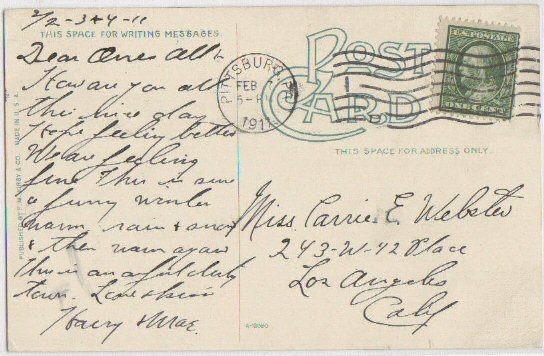 2/2-3+4-11
THIS SPACE FOR WRITING MESSAGES
Dear Ones All:
How are you all
this fine day
Hope feeling better
We are feeling
fine This is sure
a funny winter
warm rain & snow
& then warm again
this is an awful dirty
town. Love & kisses
Harry & Mae.
PITTSBURG, PA.
FEB
5-P
1911
POST
CARD
U.S. POSTAGE
ONE CENT
THIS SPACE FOR ADDRESS ONLY.
Miss. Carrie E. Webster
243-W-42 Place
Los Angeles
Calif
MADE IN U.S.A.
& CO.
PUBLISHED BY